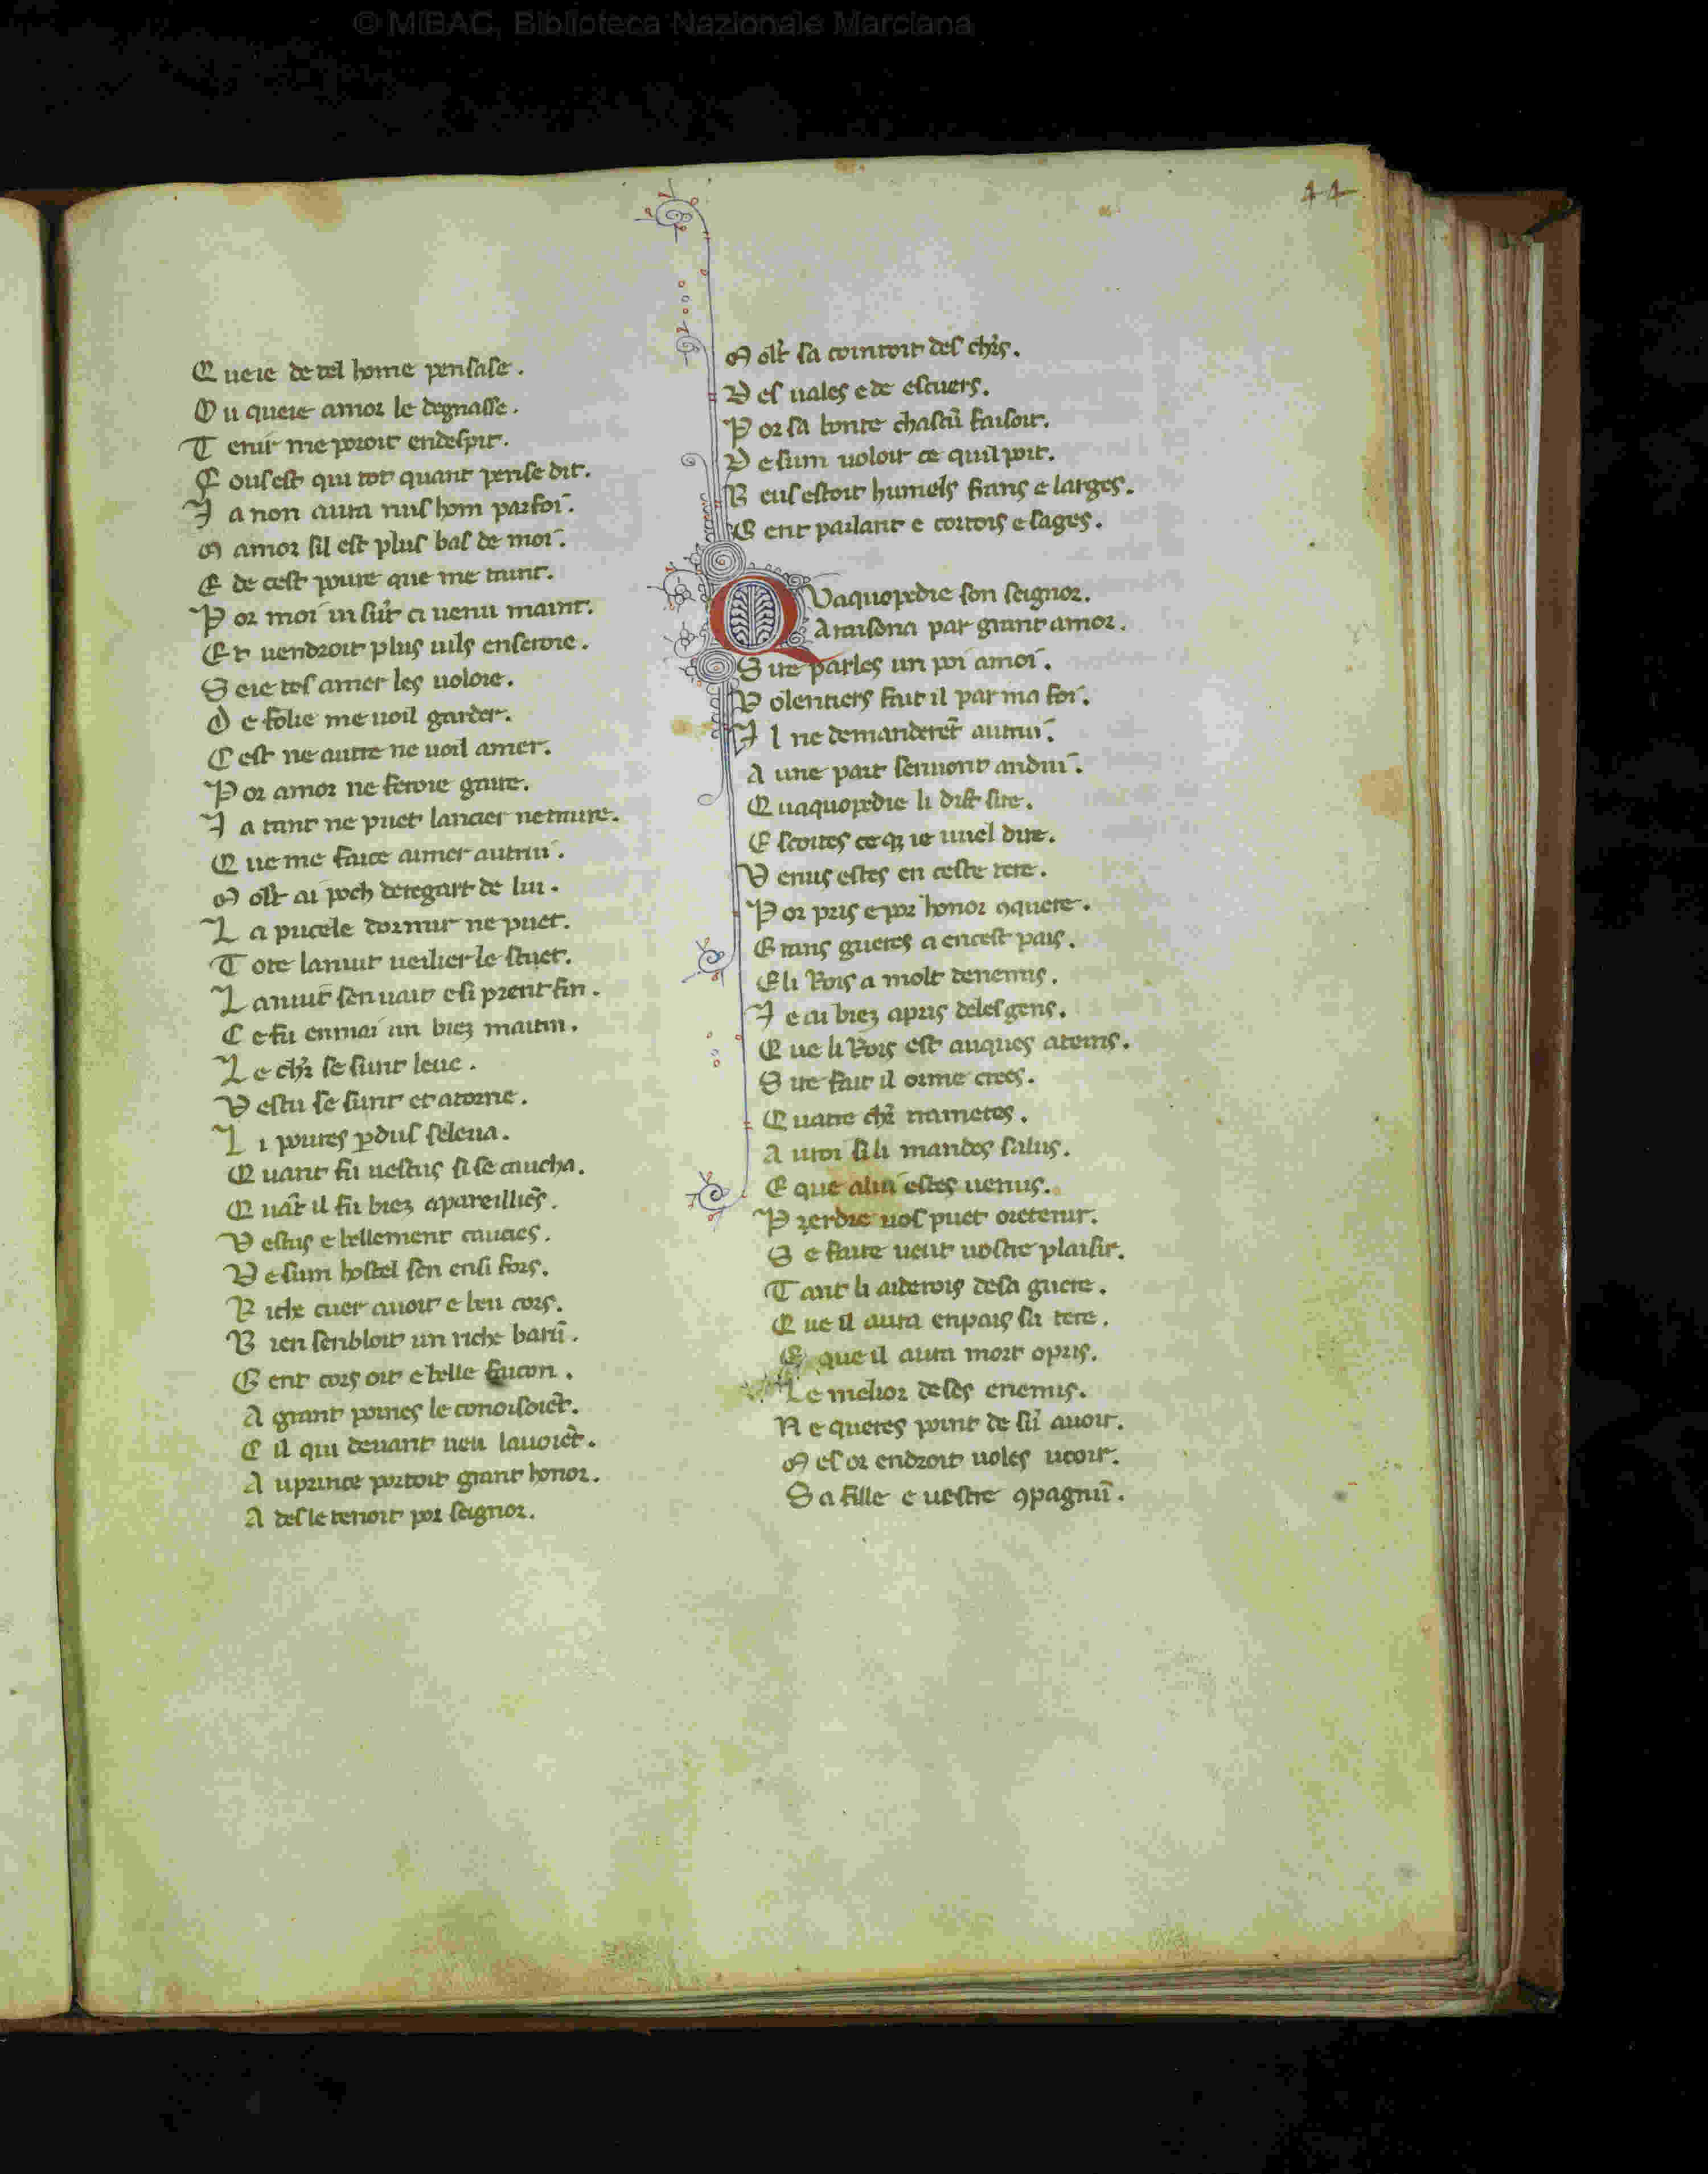 © MiBAC, Biblioteca Nazionale Marciana
44
Q ueie de tel home pensase.
O u queie amor le degnasse.
T enir me poroit endespit.
F ous est qui tot quant pense dit.
J a non aura nus hom par foi.
M amor sil est plus bas de moi.
E de cest poure que me
P or moi ci uenu maint.
E t uendroit plus uils enseroie.
S eie tos amer les uoloie.
D e folie me uoil garder.
C est ne autre ne uoil amer.
P or amor ne feroie gaire.
J a tant ne puet lancier netraire.
Q ue me face aimer autrui.
M olt ai poch deregart de lui.
L a pucele dormir ne puet.
T ote lanuit ueilier le stuet.
L anuit sen uait e si prent fin.
C e fu enmai un biez maitin.
L e chr̃ se sunt leue.
V estu se sunt et atorne.
L i poures ꝑdus seleua.
Q uant fu uestus si se caucha.
Q uãt il fu biez apareilliẽs.
V estus e bellement caucies.
D esum hostel sen ensi fors.
R iche cuer auoit e beu cors.
B ien senbloit un riche barũ.
G ent cors oit e belle faucon.
A grant poines le conoisoiẽt.
C il qui deuant ueu lauoiẽt.
A uprince portoit grant honor.
A des le tenoit por seignor.
M olt sa cointoit des chr̃s.
D es uales e de escuers.
P or sa bonte chascũ faisoit.
D esum uoloir ce quil poit.
B eus estoit humels frans e larges.
G ent parlant e cortois e sages.
Q Vaquopedie son seignor.
A raisona par grant amor.
S ire parles un poi amoi.
V olentiers fait il par ma foi.
J l ne demanderẽt autrui.
A une part senuont andui.
Q uaquopedie li dist sire.
E scoutes ce qꝫ ie uuel dire.
V enus estes en ceste tere.
P or pris e por honor ꝯquere.
G rans gueres a encest pais.
E li Rois a molt denemis.
J e ai biez apris deles gens.
Q ue li Rois est auques atems.
S ire fait il orme crees.
Q uatre chr̃
A uroi si li mandes salus.
E que alui estes uenus.
P perdre uos puet oretenir.
S e faire ueut uostre plaisir.
T ant li aiderois desa guere.
Q ue il aura enpais sa tere.
E que il aura mort opris.
L e melior deses enemis.
N e queres point de sũ auoir.
M es or endroit uoles ueoir.
S a fille e uestre ꝯpagnũ.